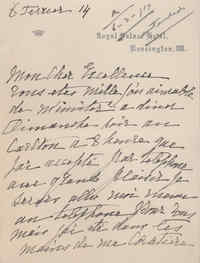 6 Fevrier 14
Royal Palace Hotel,
Kensington, W.
Mon cher Excellence
Vous etes mille fois aimable
de m'inviter a diner
Dimanche soir au
Carlton a 8 heures que
j'ai accepté par telephone
avec grand plaisir je
au telephone pour vous
mais j'ai été dans les
mains de ma